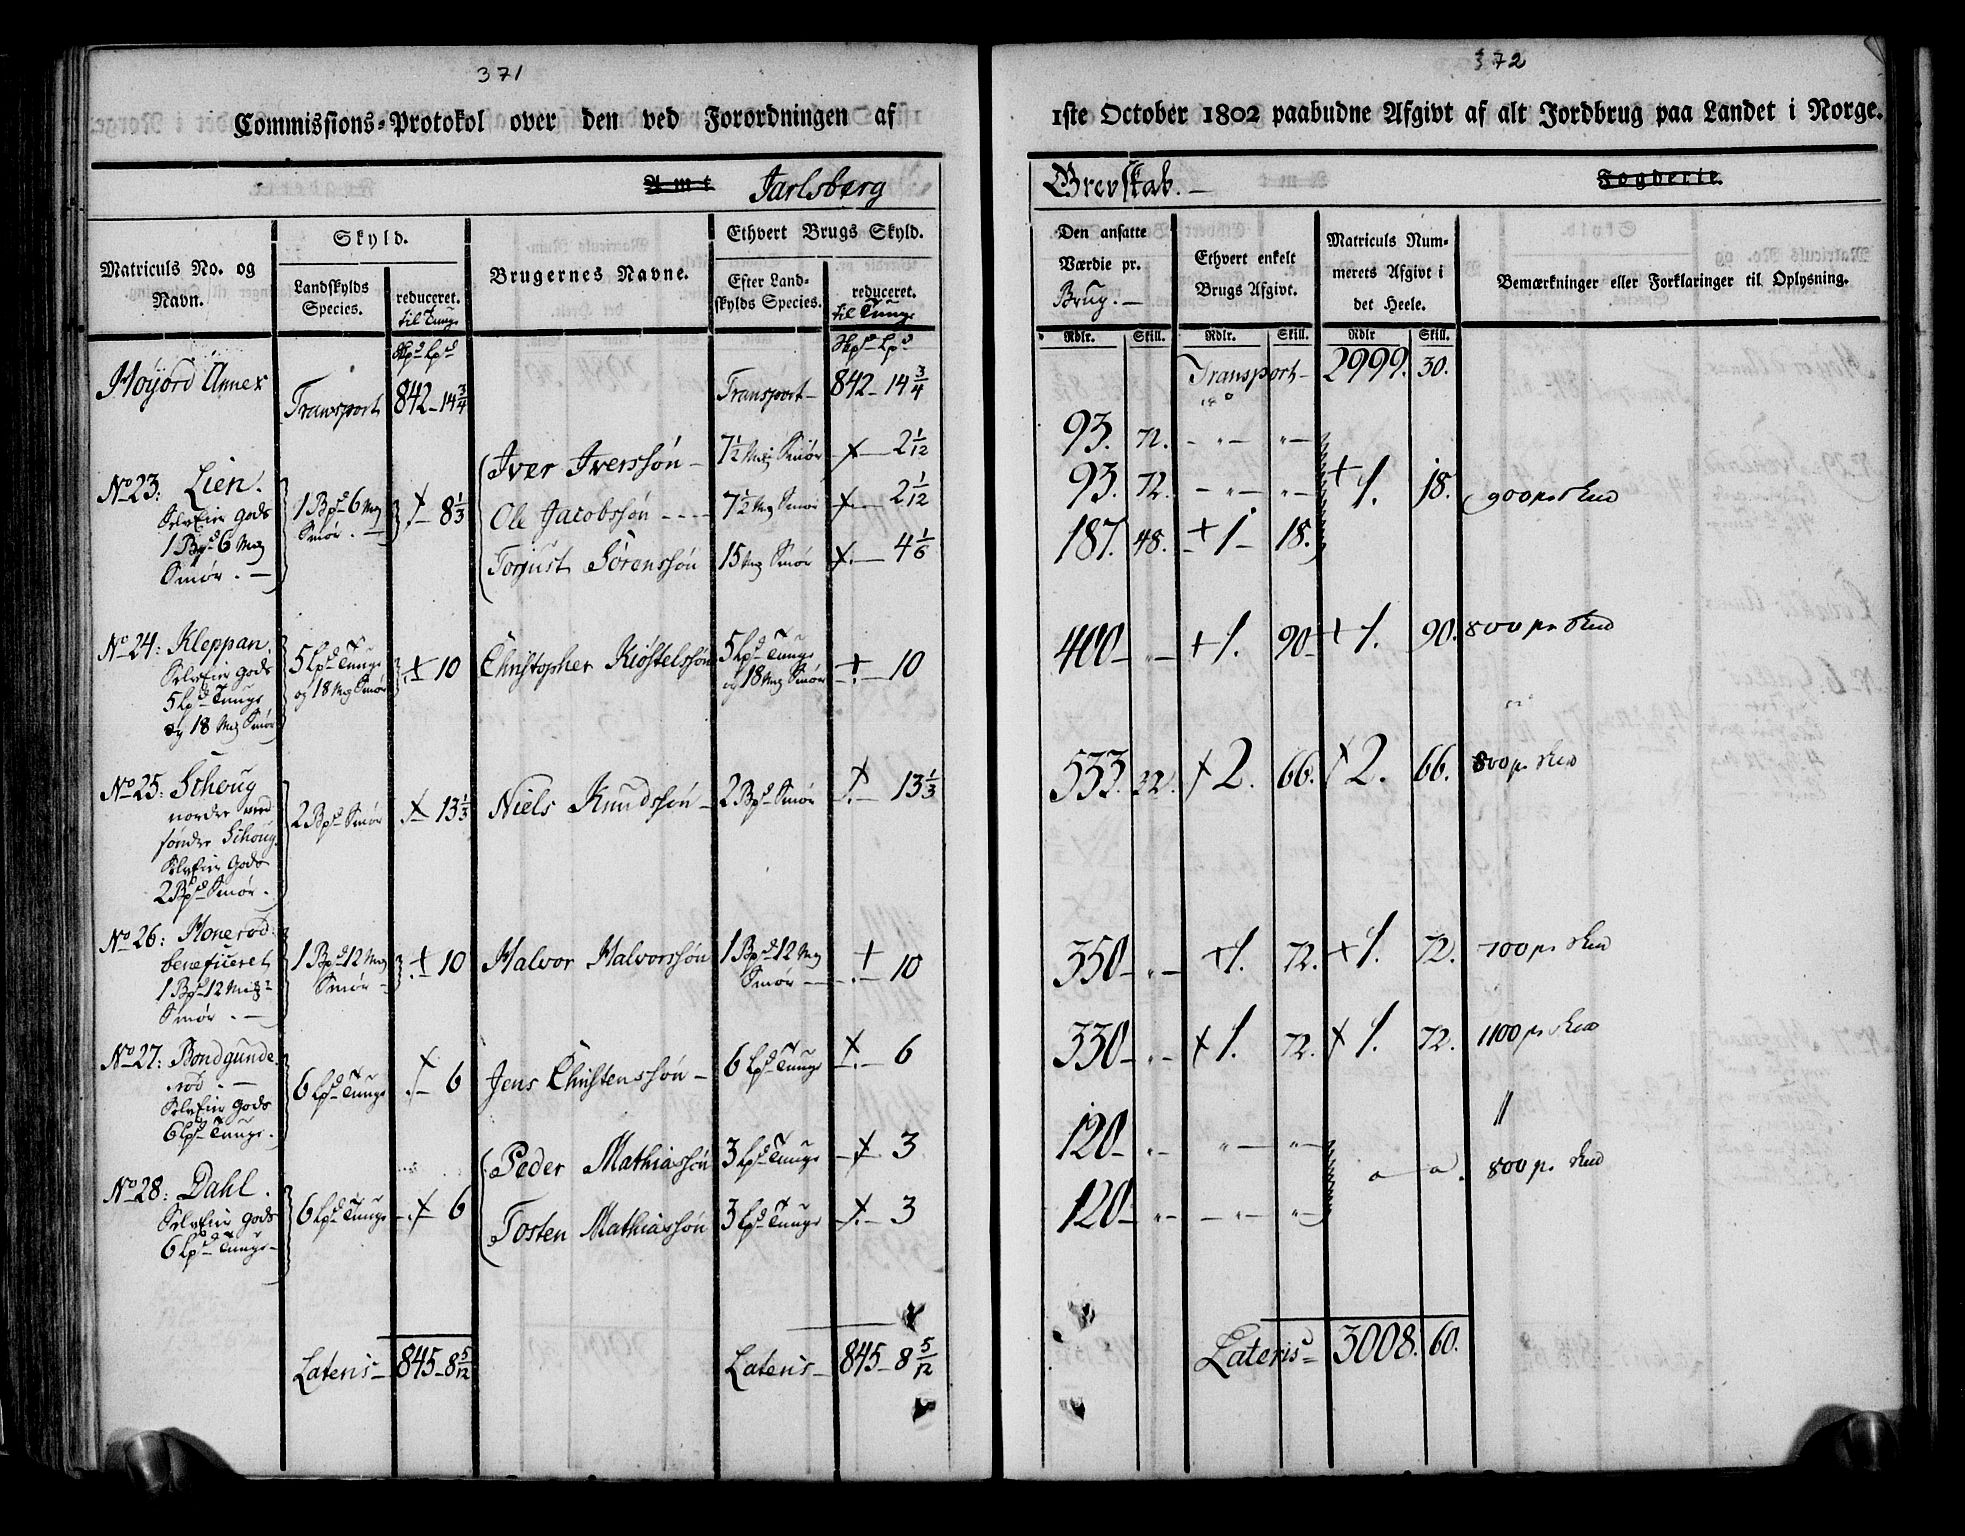 371
Commissions-Protokol over den ved Forordningen af
Amt Jarlsberg
Matriculs No. og Navn.
Skyld.
Landskylds Species.
reduceret. til Tunge
Brugernes Navne.
Ethvert Brugs Skyld.
Efter Landskylds Species.
reduceret. til Tunge
Skpd Lpd
Skpd Lpd
Høyjord Annex
Transport 842 - 14 3/4
Transport - 842 - 14 3/4
No 23: Lien.
Selveier Gods
1 Bpd 6 Mrg
Smør. -
1 Bpd 6 Mrg Smør. - 8 1/3
Iver Iverssøn - 7 1/2 Mrg Smør 2 1/12
Ole Jacobssøn - 7 1/2 Mrg Smør 2 1/12
Torjust Sørenssøn 15 Mrg Smør 4 1/6
No 24: Kleppan.
Selveier Gods
5 Lpd Tunge
og 18 Mrg Smør
5 Lpd Tunge og 18 Mrg Smør 10
Christopher Kiøstelssøn 5 Lpd Tunge og 18 Mrg Smør 10
No 25: Schoug
nordre med
søndre Schoug
Selveier Gods
2 Bpd Smør.
2 Bpd Smør 13 1/3
Niels Knudssøn - 2 Bpd Smør 13 1/3
No 26: Honerød
beneficeret
1 Bpd 12 Mrg
Smør. -
1 Bpd 12 Mrg Smør - 10
Halvor Halvorssøn 1 Bpd 12 Mrg Smør - 10
No 27: Bondgunde
rød. -
Selveier Gods
6 Lpd Tunge.
6 Lpd Tunge 6
Jens Christenssøn - 6 Lpd Tunge 6
No 28: Dahl.
Selveier Gods
6 Lpd Tunge -
6 Lpd Tunge 6
Peder Mathiassøn 3 Lpd Tunge 3
Tosten Mathiassøn 3 Lpd Tunge 3
Lateris - 845 - 8 5/12
Lateris - 845 - 8 5/12
372
1ste October 1802 paabudne Afgivt af alt Jordbrug paa Landet i Norge.
Grevskab. - Fogderie.
Den ansatte Værdie pr. Brug. -
Ethvert enkelt Brugs Afgivt.
Matriculs Nummerets Afgivt i det Heele.
Bemærkninger eller Forklaringer til Oplysning.
Rdlr. Skill. Rdlr. Skill. Rdlr Skill.
Transport - 2999. 30.
93. 72. - " - " -
93. 72. - " - " - + 1. 18. 900 pr Skud
187. 48. + 1 - 18.
400 - " - + 1. 90 - + 1. 90. 800 pr Skud
533. 32. 2. 66. 2. 66. 800 pr Skud
350 - " - + 1. 72. + 1. 72. 700 pr Skud
330 - " - 1. 72. 1. 72. 1100 pr Skud
120 - " - " - " - "
800 pr Skud
120 - " - " - " -
Lateris - 3008. 60.